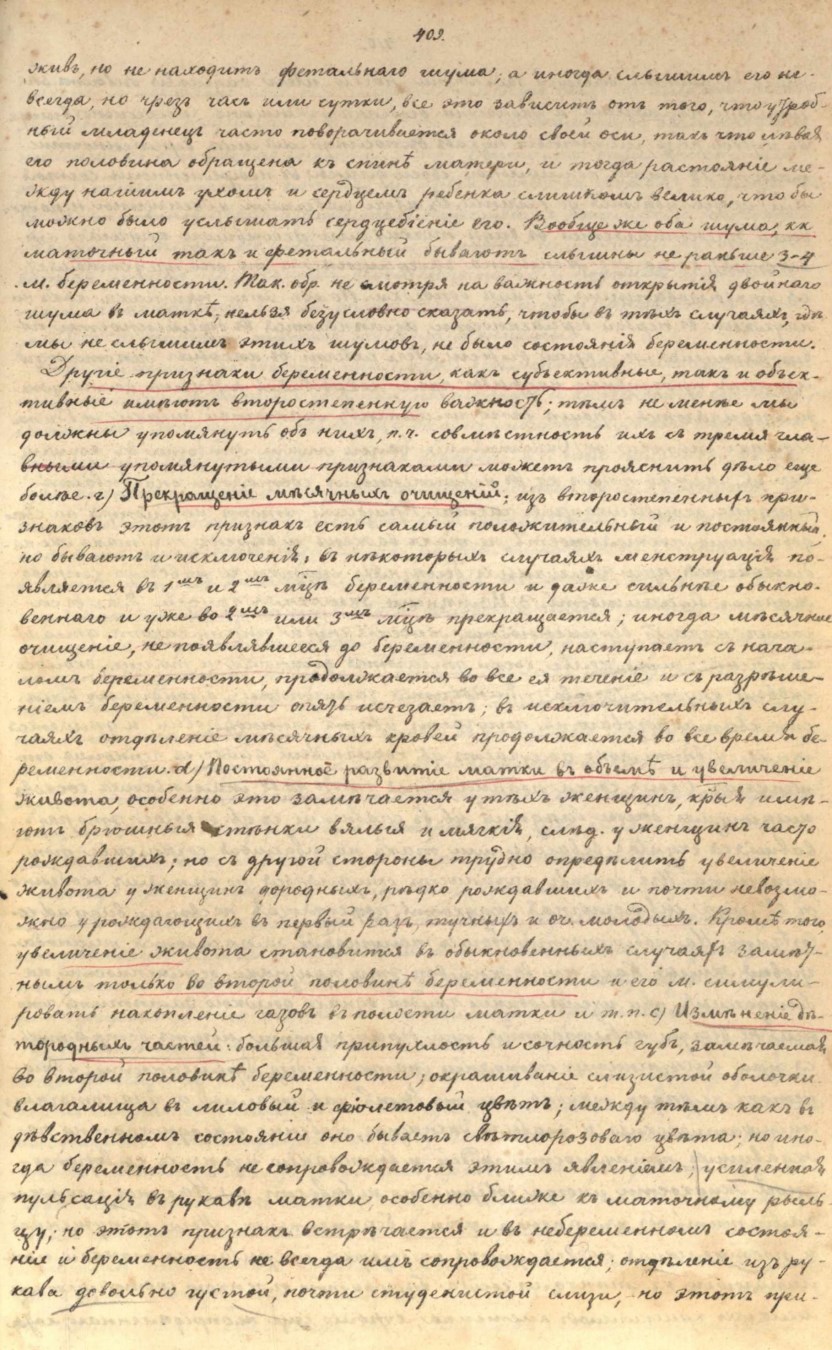 409.
живъ, но не находитъ фетальнаго шума; а иногда слышимъ его не
всегда, но чрезъ часъ или сутки, все это зависитъ отъ того, что утроб-
ный младенецъ часто поворачивается около своей оси, такъ что лѣвая
его половина обращена къ спинѣ матери, и тогда растояніе ме-
жду нашимъ ухомъ и сердцемъ ребенка слишкомъ велико, что бы
можно было услышать сердцебіеніе его. Вообще же оба шума, кк
маточный такъ и фетальный бываютъ слышны не раньше 3-4
м. беременности. Так. обр. не смотря на важность открытія двойнаго
шума въ маткѣ, нельзя безусловно сказать, чтобы въ тѣхъ случаяхъ, гдѣ
мы не слышимъ этихъ шумовъ, не было состоянія беременности.
Другіе признаки беременности, какъ субъективные, такъ и объек-
тивные имѣютъ второстепенную важность; тѣмъ не менѣе мы
должны упомянуть объ нихъ, п.ч. совмѣстность ихъ съ тремя гла-
вными упомянутыми признаками можетъ прояснить дѣло еще
болѣе. г) Прекращеніе мѣсячныхъ очищеній; изъ второстепенныхъ при-
знаковъ этотъ признакъ есть самый положительный и постоянный,
но бываютъ и исключенія; въ нѣкоторыхъ случаяхъ менструація по-
является въ 1мъ и 2мъ мцѣ беременности и даже сильнѣе обыкно-
веннаго и уже во 2мъ или 3мъ мцѣ прекращается; иногда мѣсячное
очищеніе, не появлявшееся до беременности, наступаетъ съ нача-
ломъ беременности, продолжается во все ея теченіе и съ разрѣше-
ніемъ беременности опять исчезаетъ; въ исключительныхъ слу-
чаяхъ отдѣленіе мѣсячныхъ кровей продолжается во все время бе-
ременности. d) Постоянное развитіе матки въ объемѣ и увеличеніе
живота, особенно это замѣчается у тѣхъ женщинъ, крыя имѣ-
ютъ брюшныя стѣнки вялыя и мягкія, слѣд. у женщинъ часто
рождавшихъ; но съ другой стороны трудно опредѣлить увеличеніе
живота у женщинъ дородныхъ, рѣдко рождавшихъ и почти невозмо-
жно у рождающихъ въ первый разъ, тучныхъ и оч. молодыхъ. Кромѣ того
увеличеніе живота становится въ обыкновенныхъ случаяхъ замѣт-
нымъ только во второй половинѣ беременности и его м. симули-
ровать накопленіе газовъ въ полости матки и т.п. с) Измѣненіе дѣ-
тородныхъ частей: большая припухлость и сочность губъ, замѣчаемая
во второй половинѣ беременности; окрашиваніе слизистой оболочки
влагалища въ лиловый и фіолетовый цвѣтъ; между тѣмъ какъ въ
дѣвственномъ состояніи оно бываетъ свѣтлорозоваго цвѣта; но ино-
гда беременность не сопровождается этимъ явленіемъ; усиленная
пульсація въ рукавѣ матки особенно ближе къ маточному рыль-
цу; но этотъ признакъ встрѣчается и въ небеременномъ состоя-
ніи и беременность не всегда имъ сопровождается; отдѣленіе изъ ру-
кава довольно густой, почти студенистой слизи, но этотъ при-